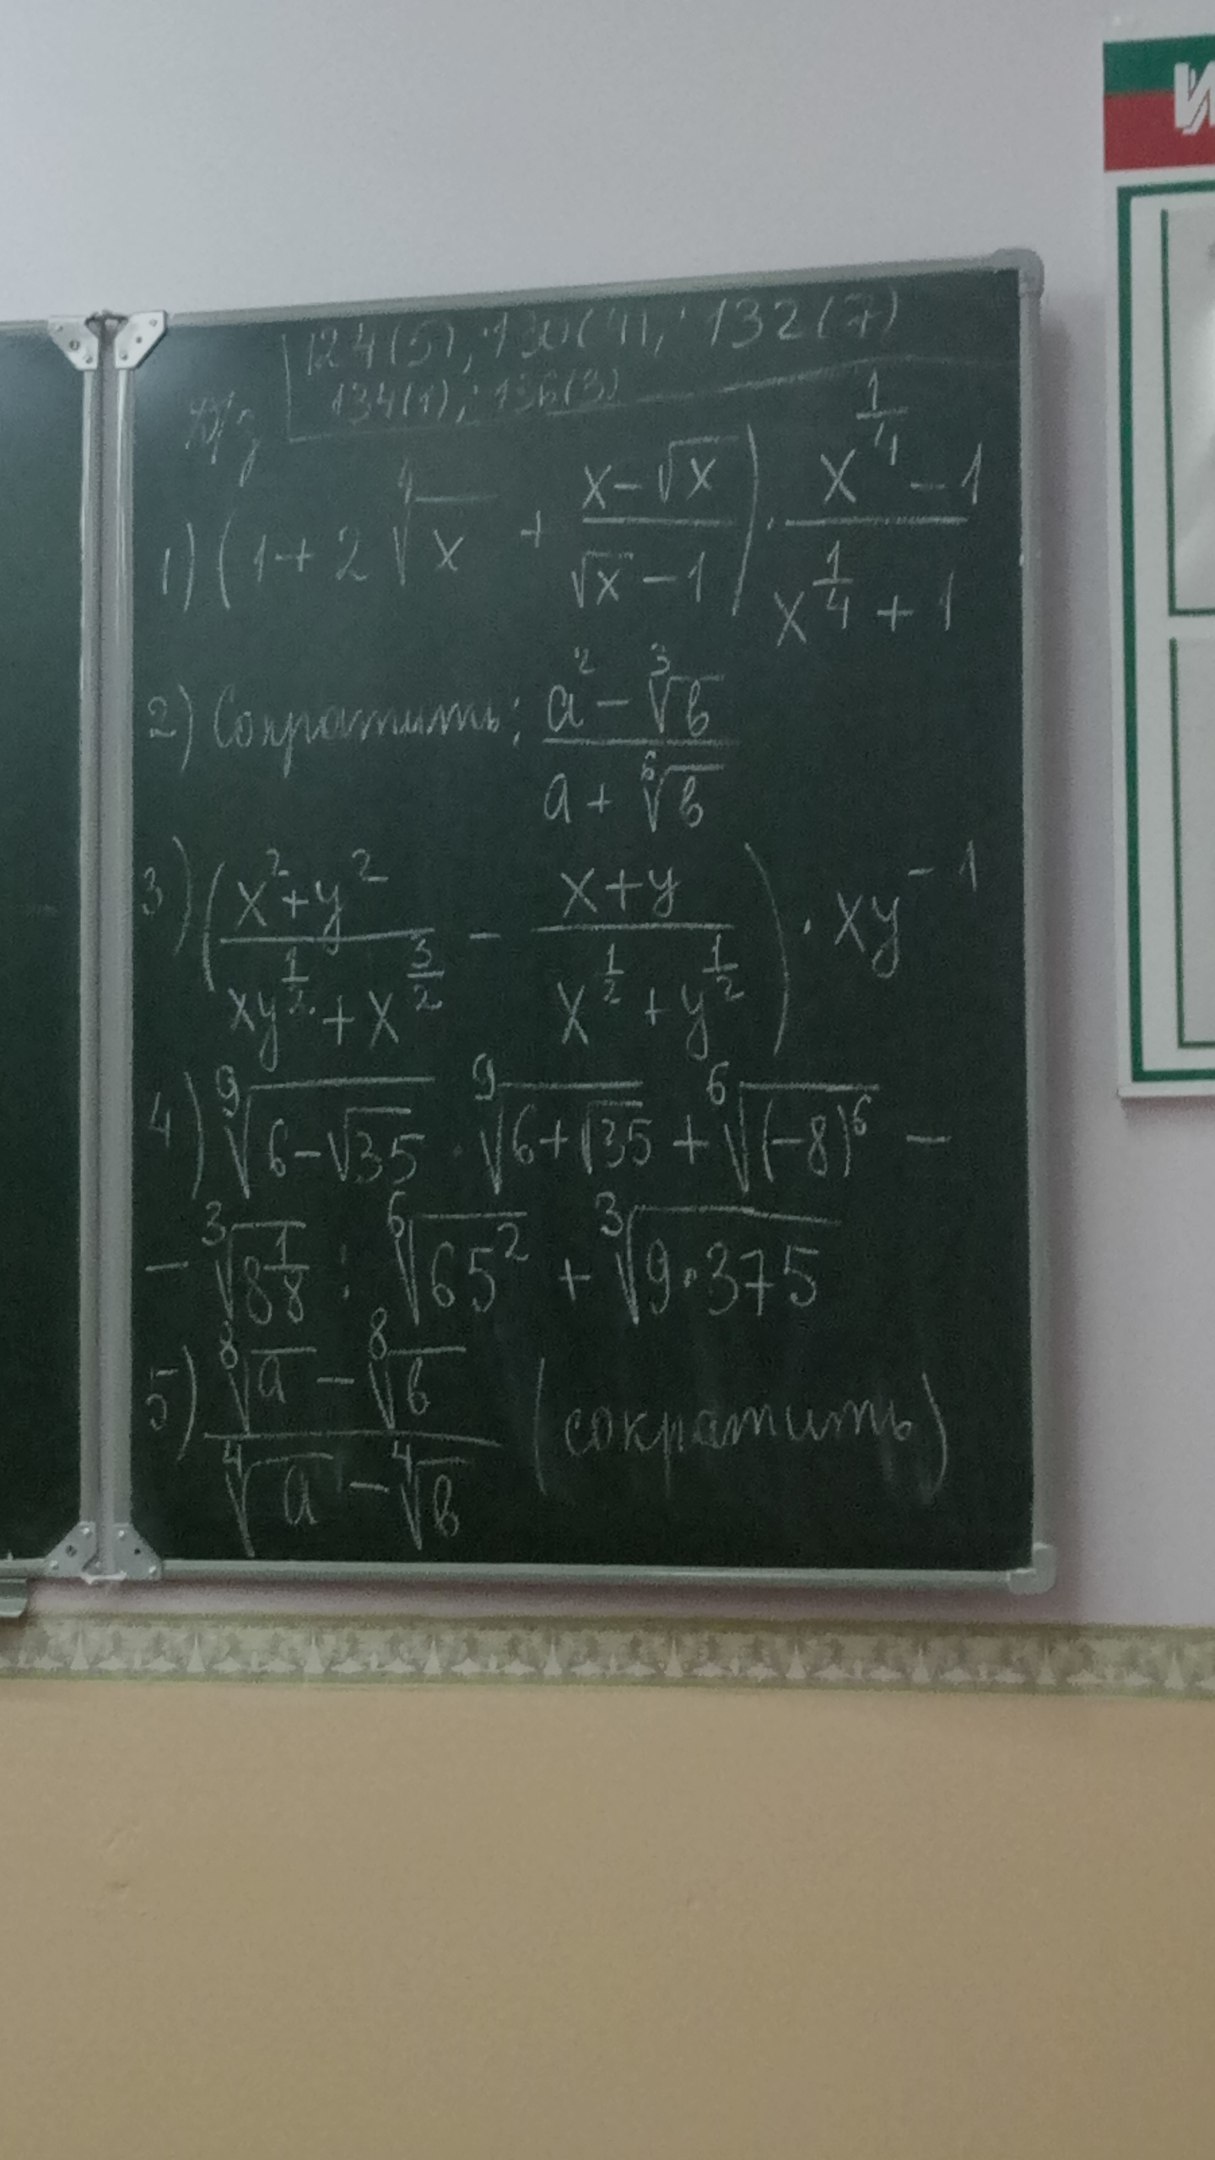 124(5); 130(4); 132(7)
Д/з 134(1); 136(3)
1) (1+2⁴√x + (x-√x)/(√x-1)) · (x^(1/4) - 1)/(x^(1/4) + 1)
2) Сократить: (a² - ³√в)/(a + ⁶√в)
3) ((x²+y²)/(xy^(1/2) + x^(3/2)) - (x+y)/(x^(1/2) + y^(1/2))) · xy⁻¹
4) ⁹√(6-√35) · ⁹√(6+√35) + ⁶√((-8)⁶) -
- ³√(8 1/8) : ⁶√(65²) + ³√(9·375)
5) (⁸√a - ⁸√в)/(⁴√a - ⁴√в) (сократить)
И